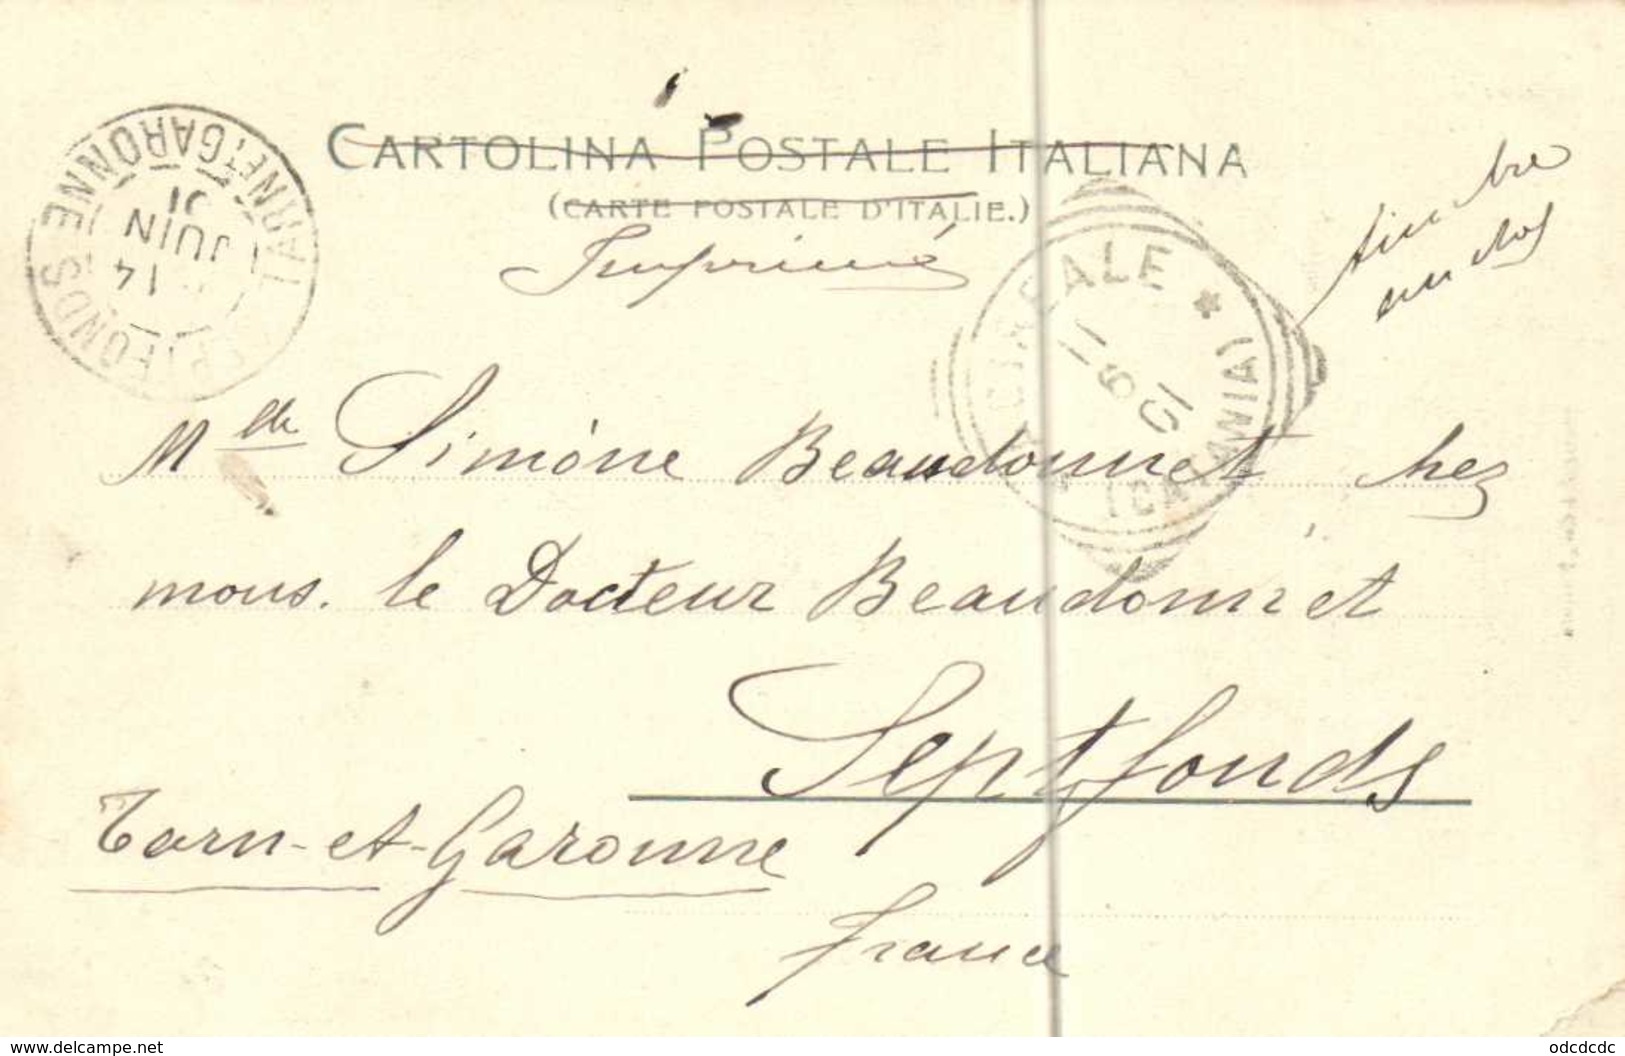 CARTOLINA POSTALE ITALIANA
(CARTE POSTALE D'ITALIE.)
Imprimé
timbre
au dos
SEPTFONDS
TARN-ET-GARONNE
14
JUIN
01
ACIREALE
(CATANIA)
11 6 01
Mdle Simone Beaudonnet chez
mons. le Docteur Beaudonnet
Septfonds
Tarn-et-Garonne
France
www.delcampe.net
odcdcdc